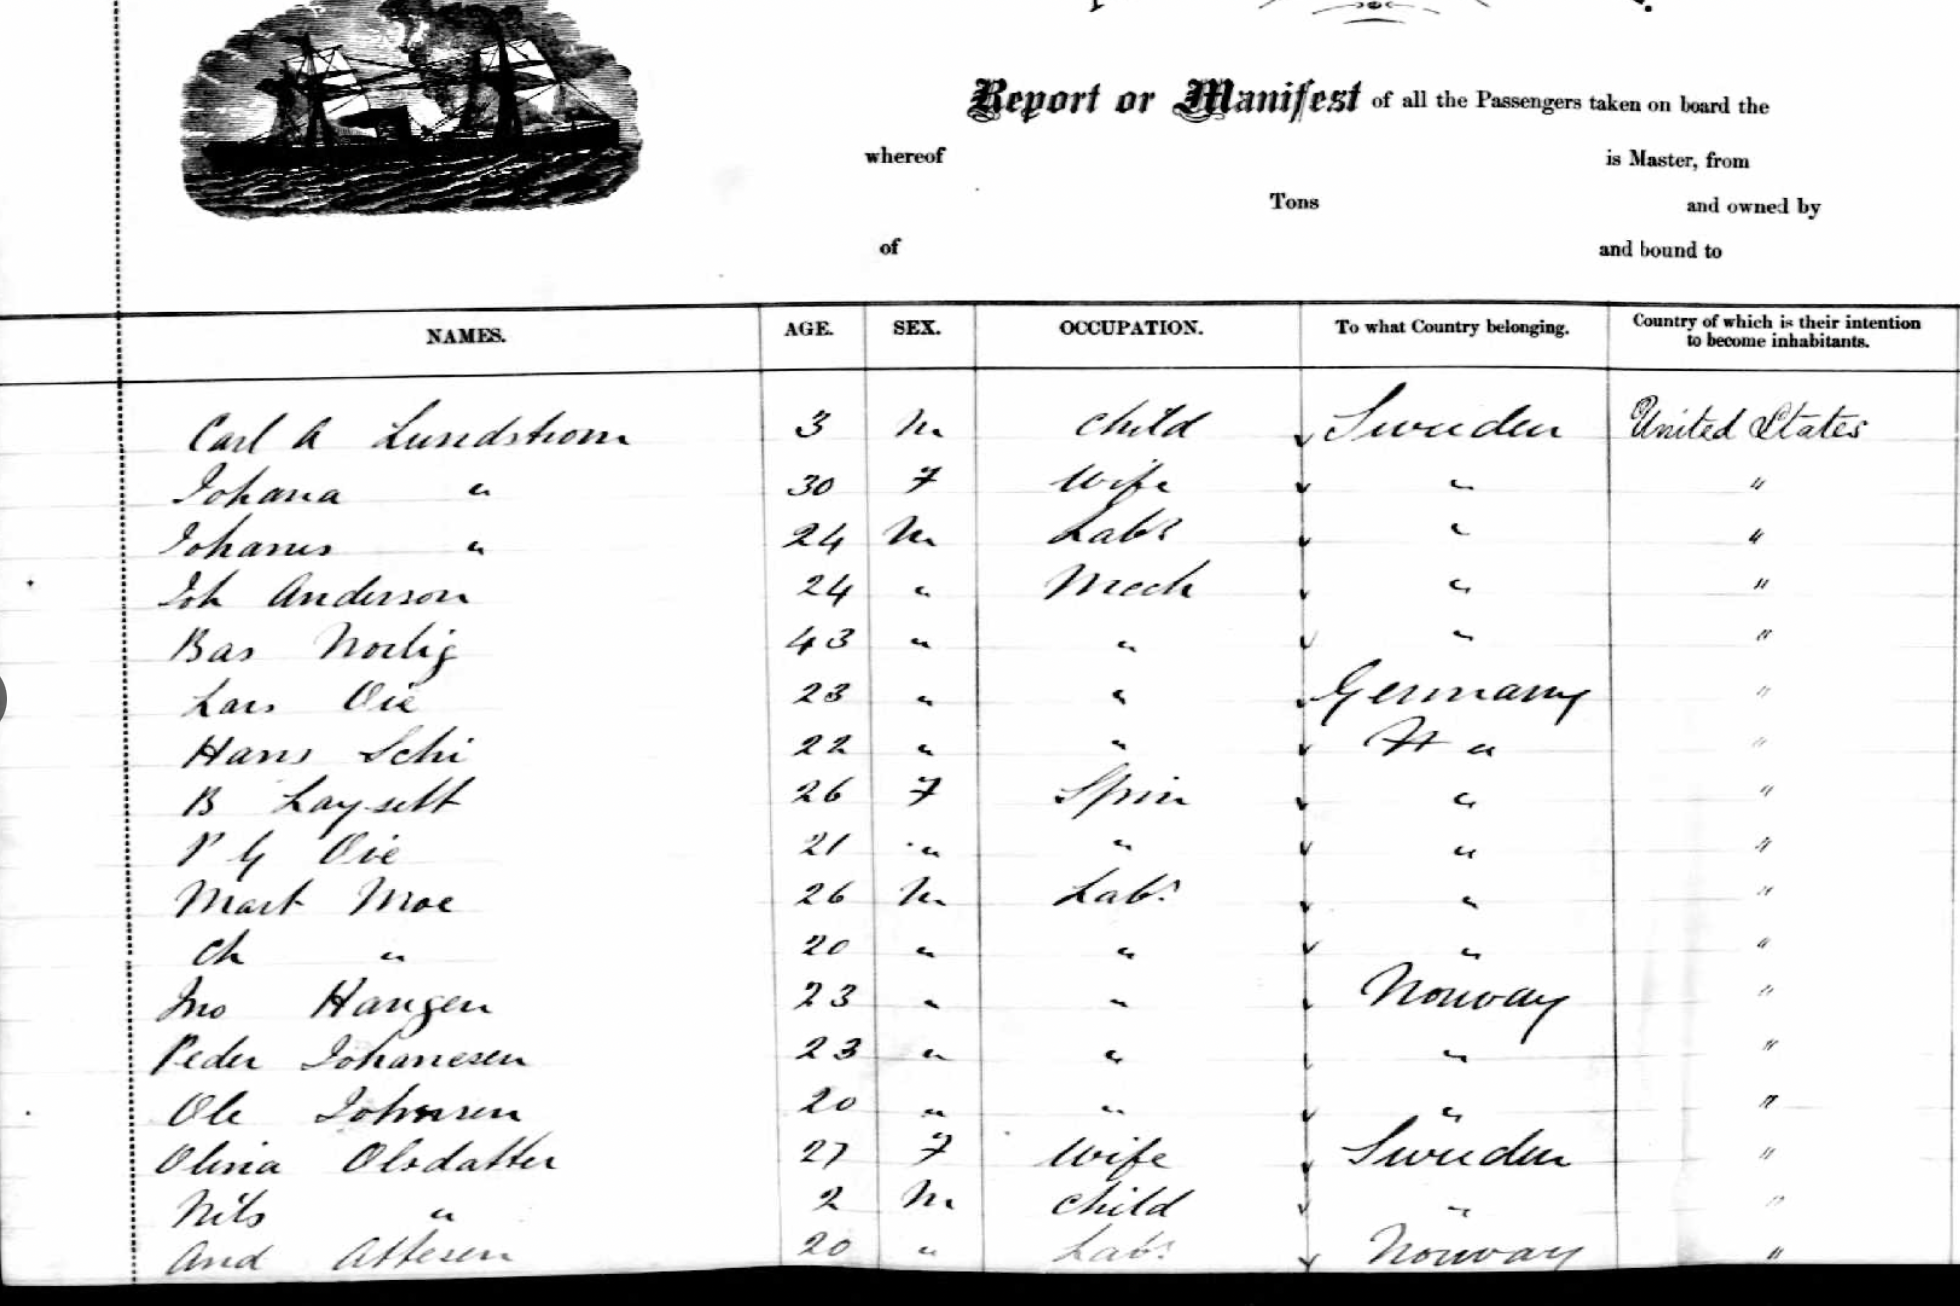 Report or Manifest of all the Passengers taken on board the
whereof is Master, from
Tons and owned by
of and bound to
NAMES. AGE. SEX. OCCUPATION. To what Country belonging. Country of which is their intention to become inhabitants.
Carl A Lundstrom 3 M child Sweden United States
Johana " 30 F Wife " "
Johanes " 24 M Labr " "
Joh Anderson 24 " Mech " "
Bas Norlig 43 " " " "
Lars Oie 23 " " Germany "
Hans Schi 22 " " "
B Laysett 26 F Spin " "
P G Oie 21 " " " "
Mart Moe 26 M Labr " "
Ch " 20 " " " "
Jno Haugen 23 " " Norway "
Peder Johanesen 23 " " " "
Ole Johnsen 20 " " " "
Olina Olsdatter 27 F Wife Sweden "
Nils " 2 M child " "
And Attesen 20 " Labr Norway "